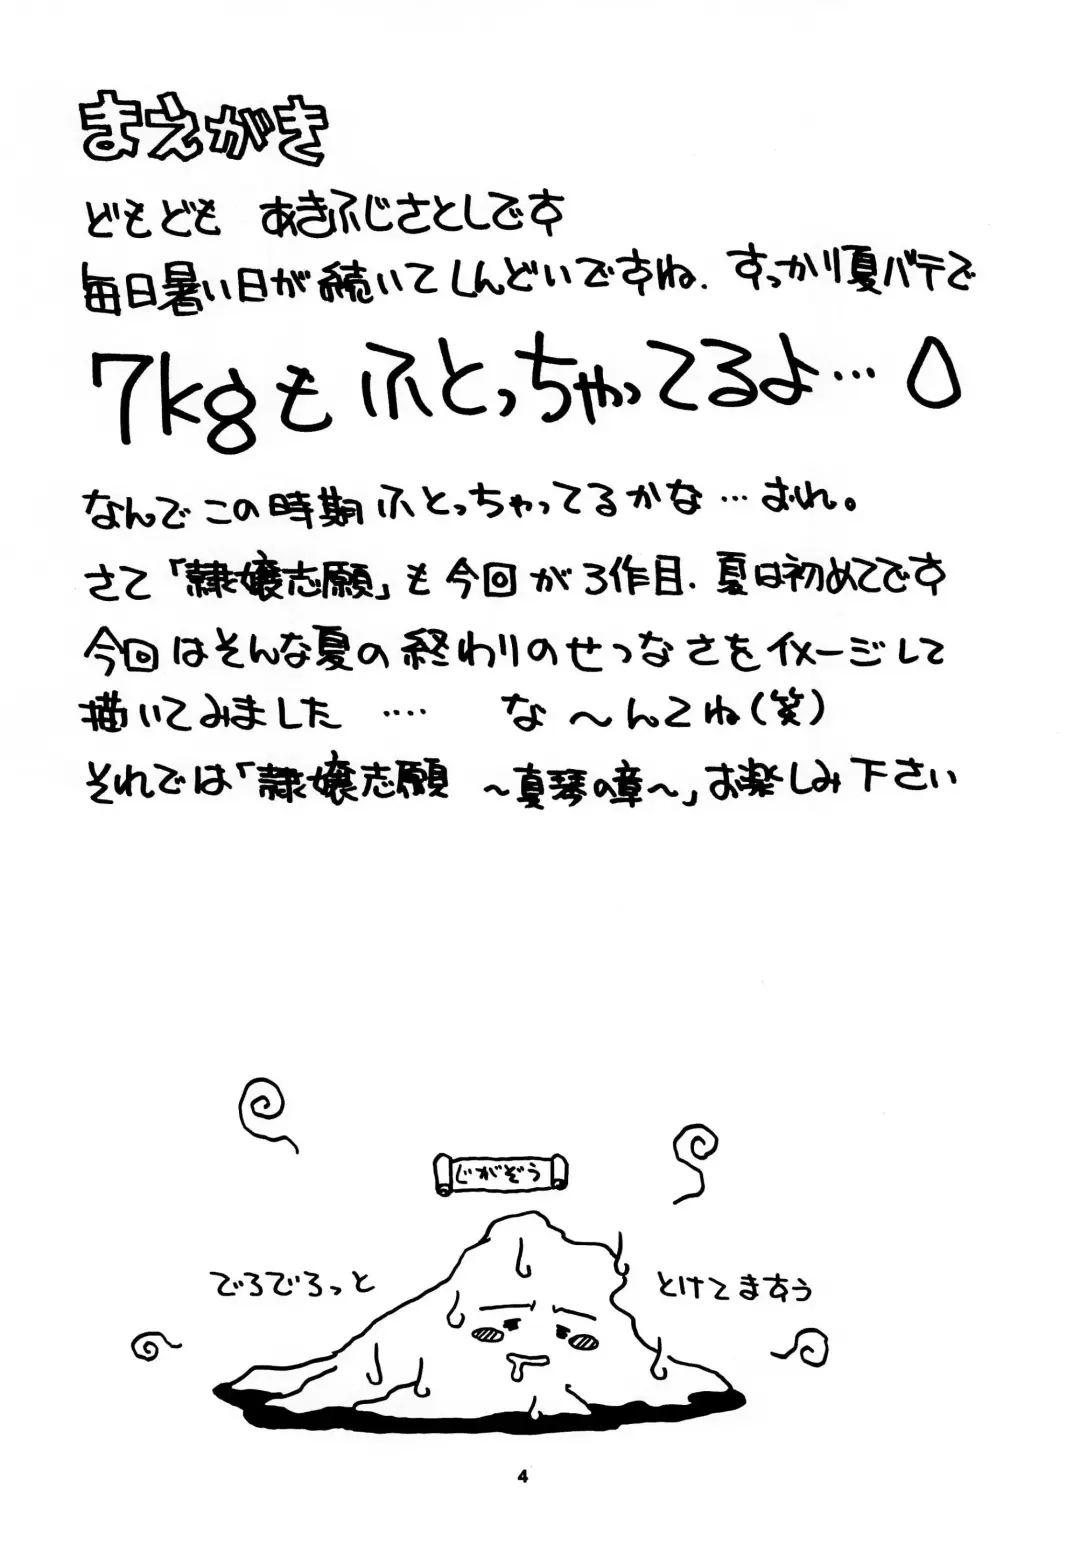 まえがき
どもども あきふじさとしです
毎日暑い日が続いてしんどいですね、すっかり夏バテで
7kgもふとっちゃってるよ…
なんでこの時期ふとっちゃってるかな…おれ。
さて「隷嬢志願」も今回が3作目、夏は初めてです
今回はそんな夏の終わりのせつなさをイメージして
描いてみました…. な〜んてね(笑)
それでは「隷嬢志願 〜真琴の章〜」お楽しみ下さい
じがぞう
でろでろっと
とけてますぅ
4